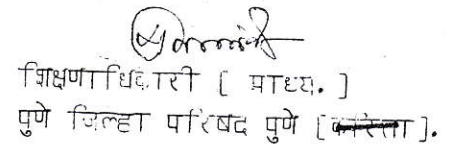 शिक्षणाधिकारी [ माध्य. ]
पुणे जिल्हा परिषद पुणे [करिता].